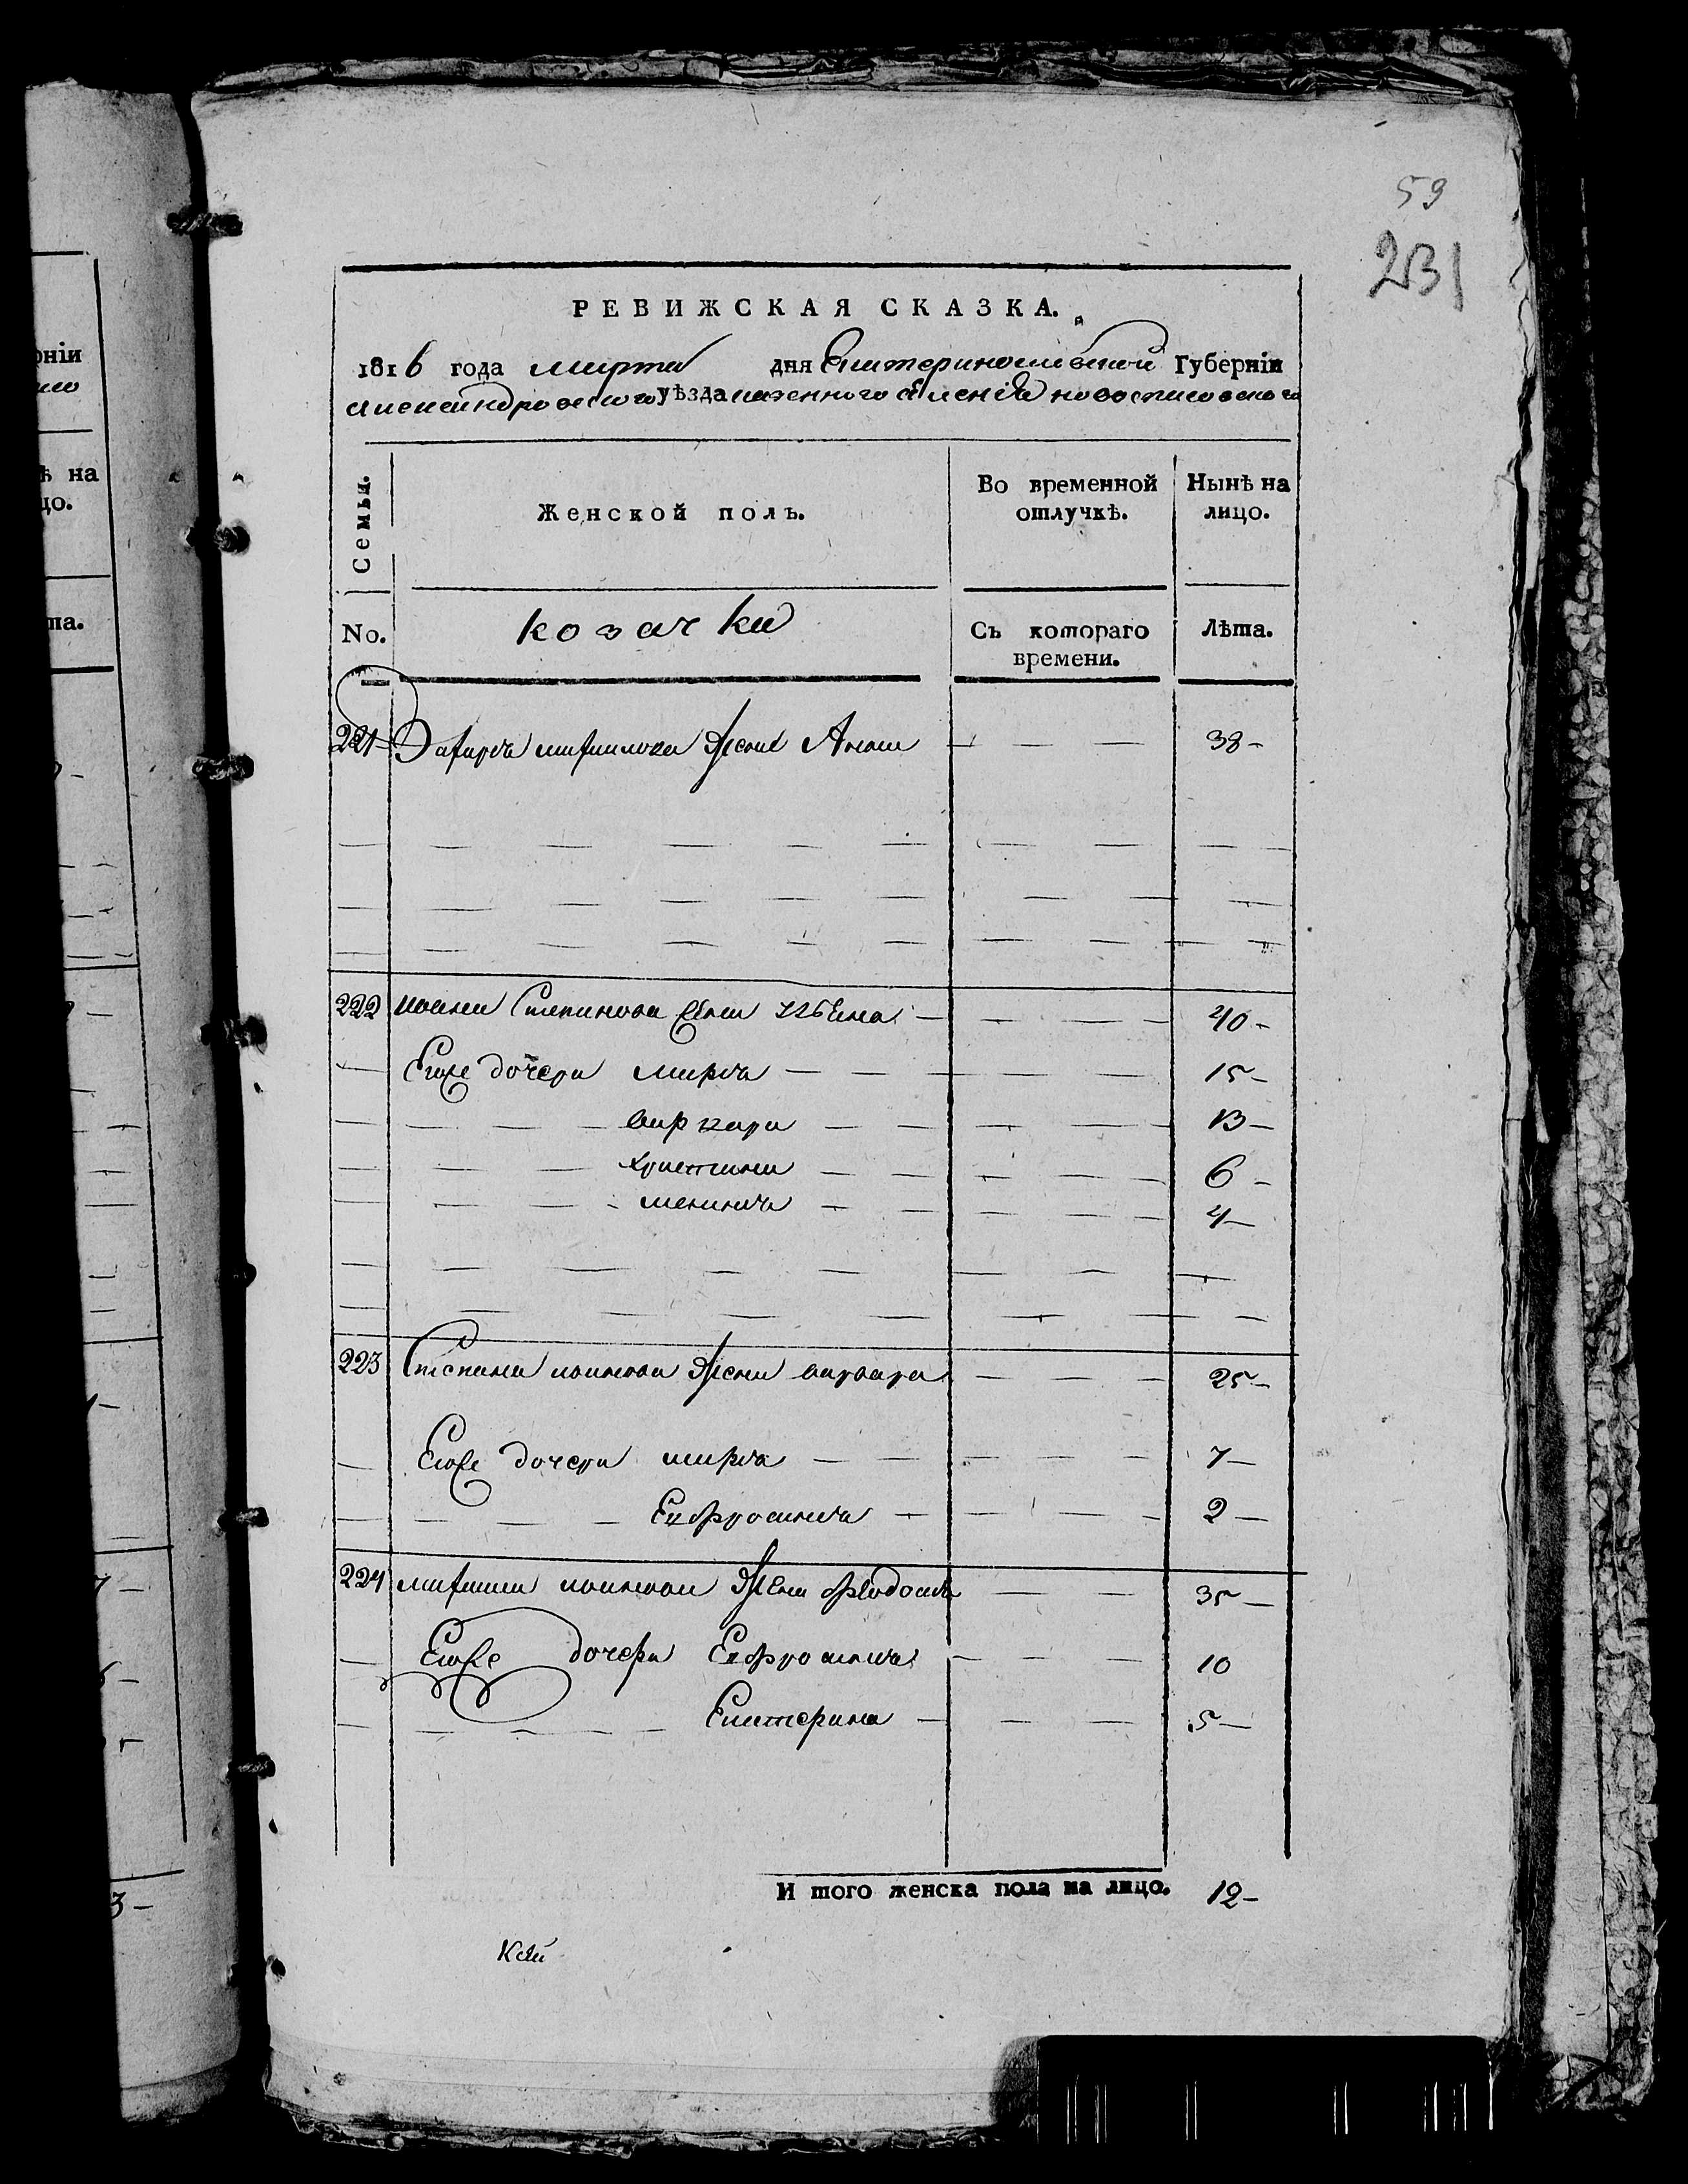 59
231
РЕВИЖСКАЯ СКАЗКА.
1816 года марта дня Екатеринославской Губерніи
Александровского уѣзда казенного селенія новоспасовского
Семьи.
Женской полъ.
Во временной отлучкѣ.
Нынѣ на лицо.
No.
козачки
Съ котораго времени.
Лѣта.
221 Захарія михаилова жена Анна — — — 38 –
222 ивана Степанова жена — — — 40 –
Егоже дочери марія — — — 15 –
варвара — — — 13 –
христина — — — 6 –
меланія — — — 4 –
223 Степана иванова жена варвара — — — 25 –
Егоже дочери марія — — — 7 –
Ефросинія — — — 2 –
224 иванова жена феодосія — — 35 –
Егоже дочери Ефросинія — — — 10
Екатерина — — — 5 –
И того женска пола на лицо. 12 –
ніи
ѣ на
цо.
та.
3 –